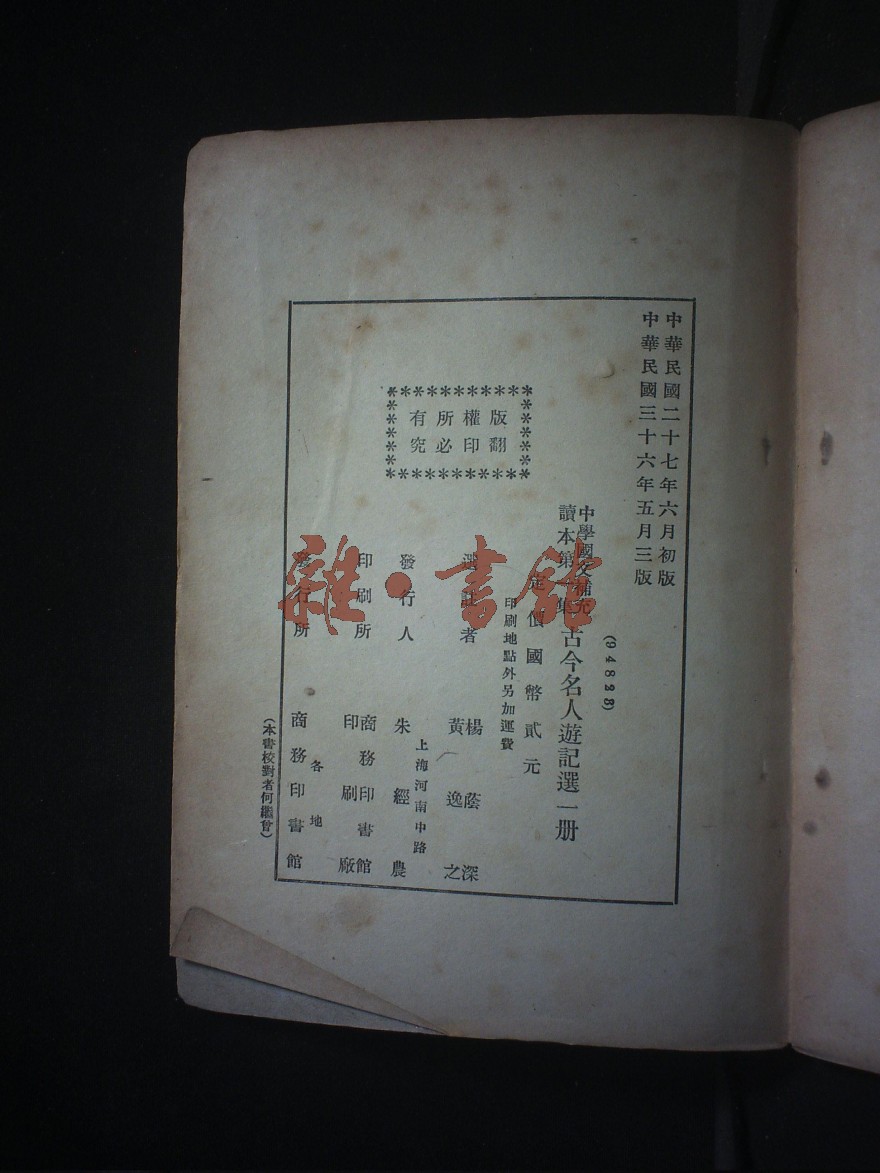 中華民國二十七年六月初版
中華民國三十六年五月三版
(94823)
中學國文補充
讀本第一集
古今名人遊記選一册
定價國幣貳元
印刷地點外另加運費
版權所有
翻印必究
選註者
楊蔭深
黃逸之
發行人
上海河南中路
朱經農
印刷所
商務印書館
印刷廠
發行所
各地
商務印書館
(本書校對者何繼曾)
雜·書館